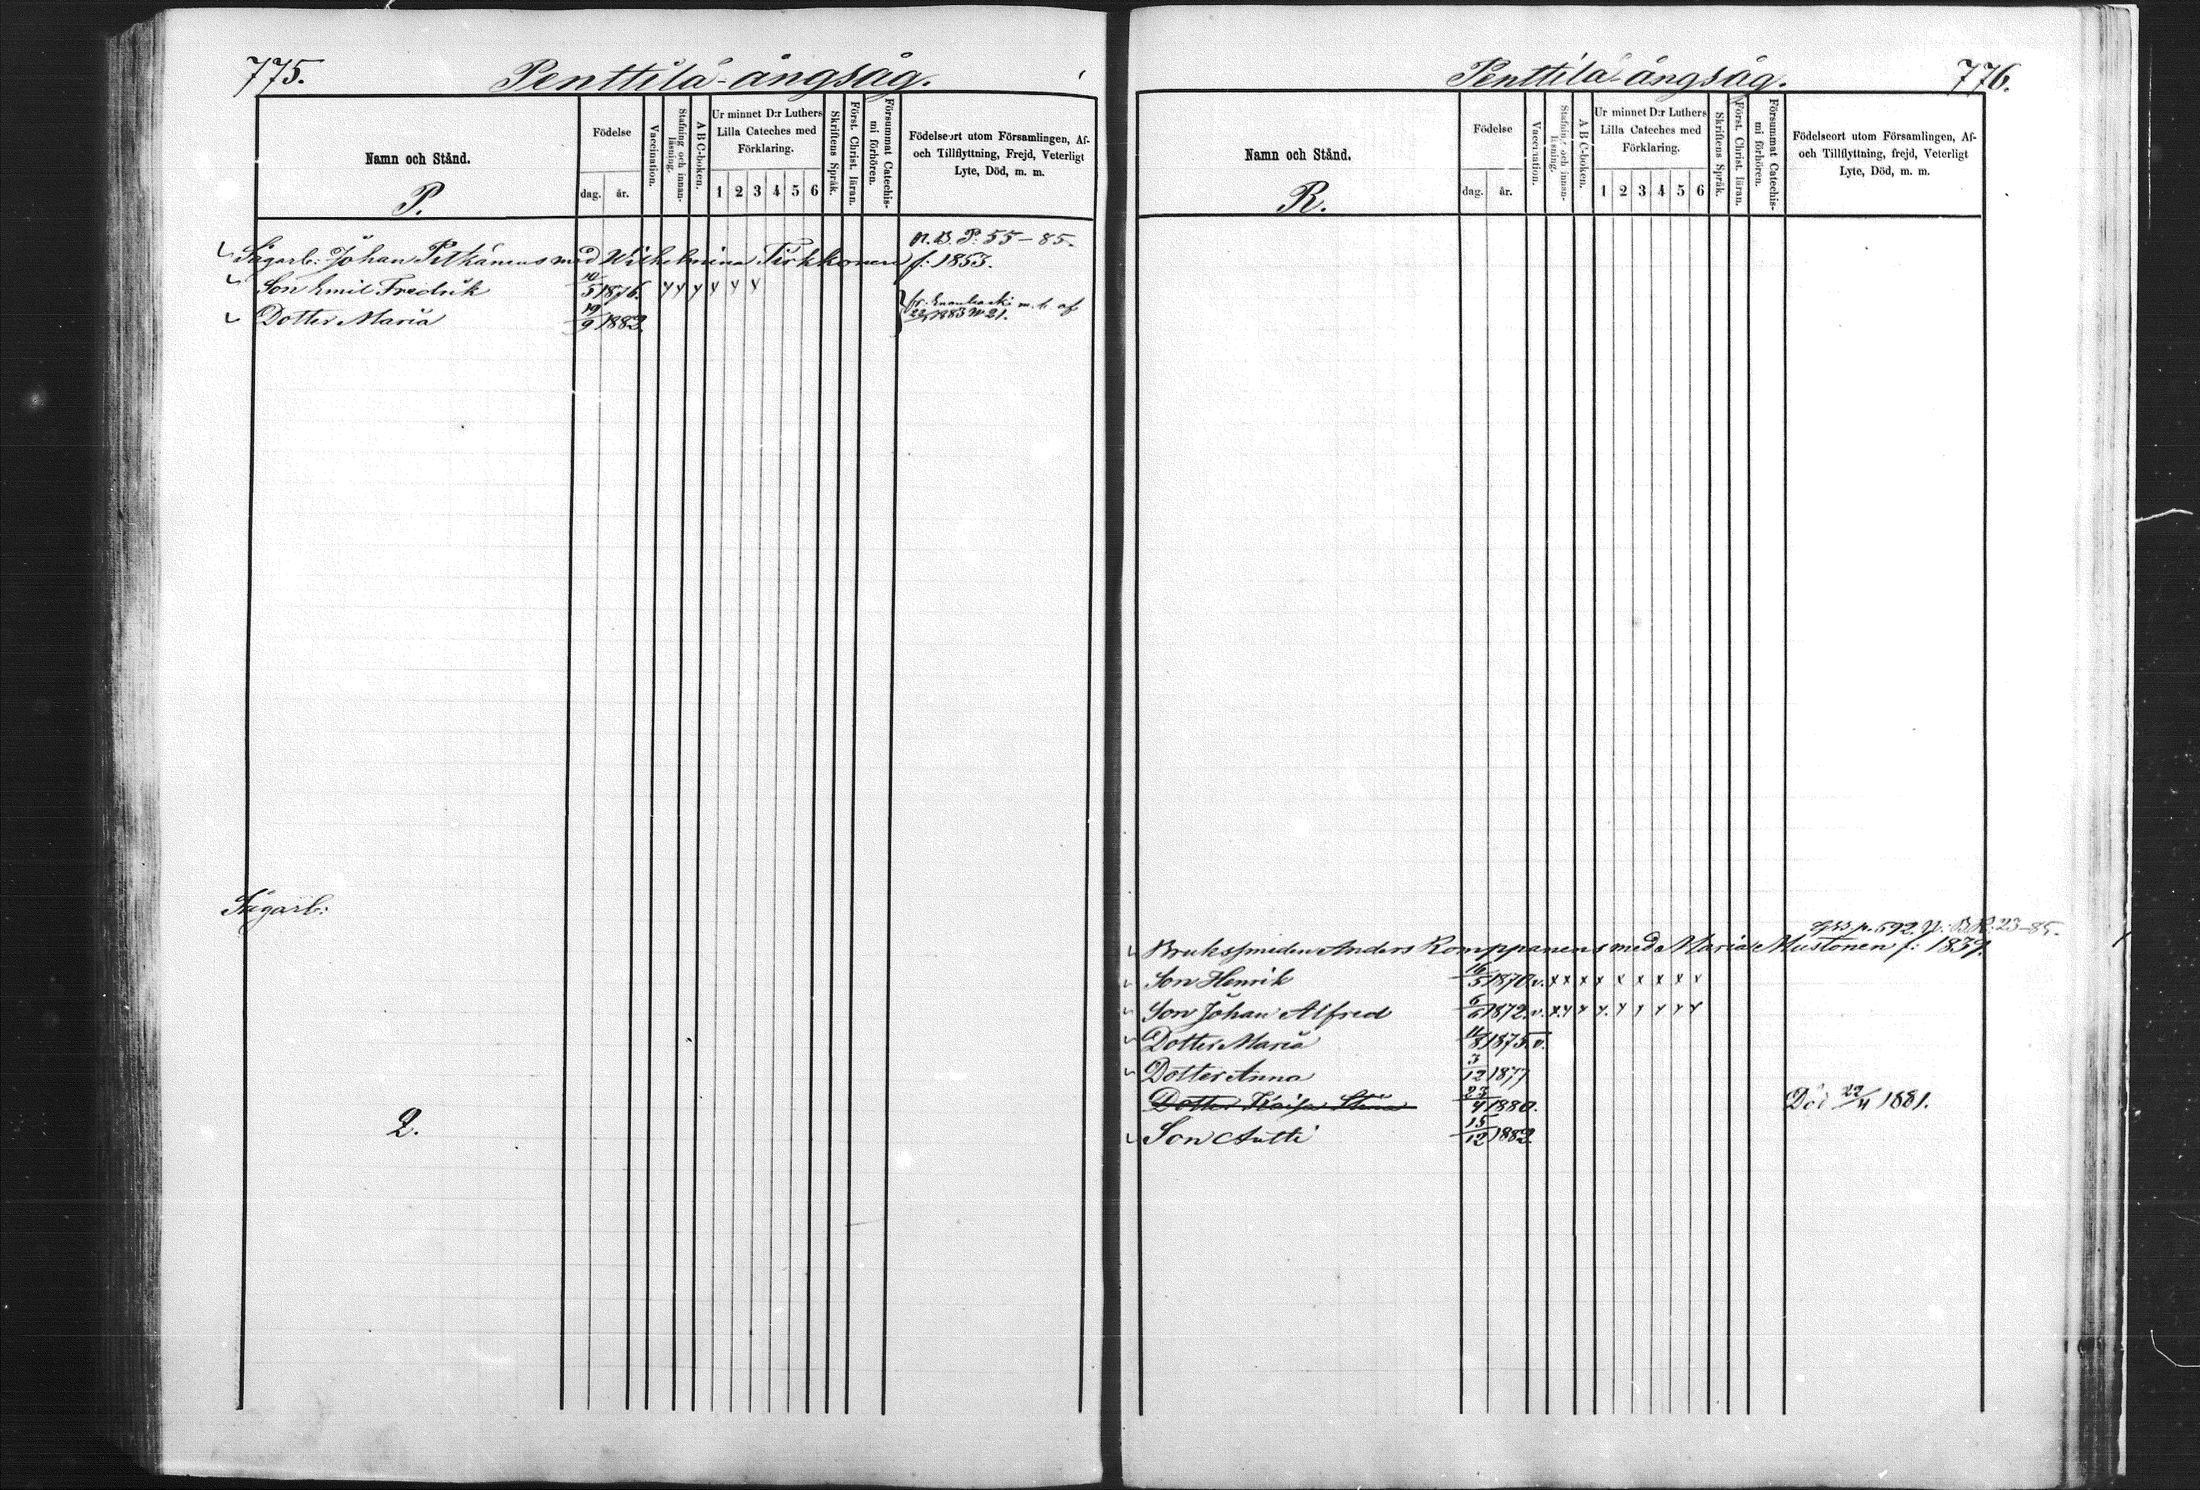 775. Penttilä-ångsåg.
Namn och Stånd.
P.
Födelse
dag. år.
Vaccination.
Stafning och innan-
läsning.
A B C-boken.
Ur minnet D:r Luthers
Lilla Cateches med
Förklaring.
1 2 3 4 5 6
Skriftens Språk.
Först. Christ. läran.
Försummat Catechis-
mi förhören.
Födelseort utom Församlingen, Af-
och Tillflyttning, Frejd, Veterligt
Lyte, Död, m. m.
P. 55-85.
Sågarb: Johan Pitkänens med Wilhelmina Tirkkonen f: 1853.
Son Emil Fredrik 10/5 1876. x x x x x x
Dotter Maria 19/9 1882
m. b. af
1883 N 21.
Sågarb:
Q.
Penttilä-ångsåg. 776.
Namn och Stånd.
R.
Födelse
dag. år.
Vaccination.
Stafning och innan-
läsning.
A B C-boken.
Ur minnet D:r Luthers
Lilla Cateches med
Förklaring.
1 2 3 4 5 6
Skriftens Språk.
Först. Christ. läran.
Försummat Catechis-
mi förhören.
Födelseort utom Församlingen, Af-
och Tillflyttning, frejd, Veterligt
Lyte, Död, m. m.
p. 592. B.R: 23-85.
Bruksmeden Anders Romppanens med Maria Mustonen f: 1837.
Son Henrik 16/5 1870 v. x x x x x x x x x
Son Johan Alfred 6/6 1872. v. x x x x x x x x x
Dotter Maria 11/8 1875 v.
Dotter Anna 3/12 1877
Dotter Kaisa Stina 23/4 1880. Död 22/4 1881.
Son Antti 15/12 1882